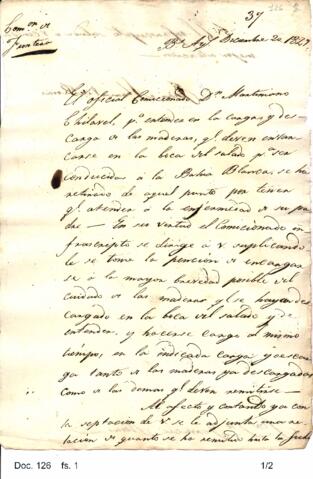 37
Com.on de
Fronteras
Bs Ays Diciembre 20 1827.
El oficial Comicionado Dn Martiniano
Chilavert, pa entender en la carga, y des-
carga de las maderas, qe deven embar-
carse en la boca del salado pa ser
conducidas á la Bahia Blanca, se ha
retirado de aquel punto por tener
qe atender a la enfermedad de su pa-
dre — En su virtud el Comicionado in-
frascripto se dirige á V suplicando
le se tome la pencion de encargar
se á la mayor brevedad posible del
cuidado de las maderas qe se hayan des
cargado en la boca del salado y de
entender, y hacerse cargo al mismo
tiempo, en la indicada carga y descar
ga tanto de las maderas ya descargadas
como de las demas qe deven remitirse —
Al efecto y contando ya con
la aseptacion de V se le adjunta una re-
lacion de quanto se ha remitido hasta la fecha
Doc. 126 fs. 1
1/2